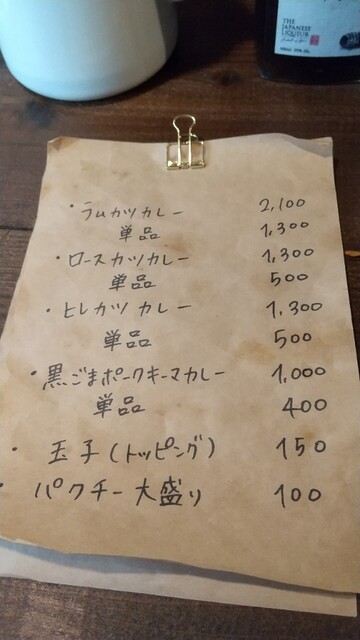 THE
JAPANESE
LIQUEUR
・ラムカツカレー 2,100
単品 1,300
・ロースカツカレー 1,300
単品 500
・ヒレカツカレー 1,300
単品 500
・黒ごまポークキーマカレー 1,000
単品 400
・玉子(トッピング) 150
・パクチー大盛り 100